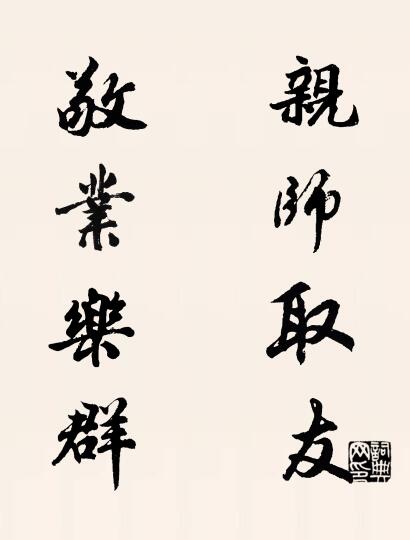 親師取友
敬業樂群
詞典
网印